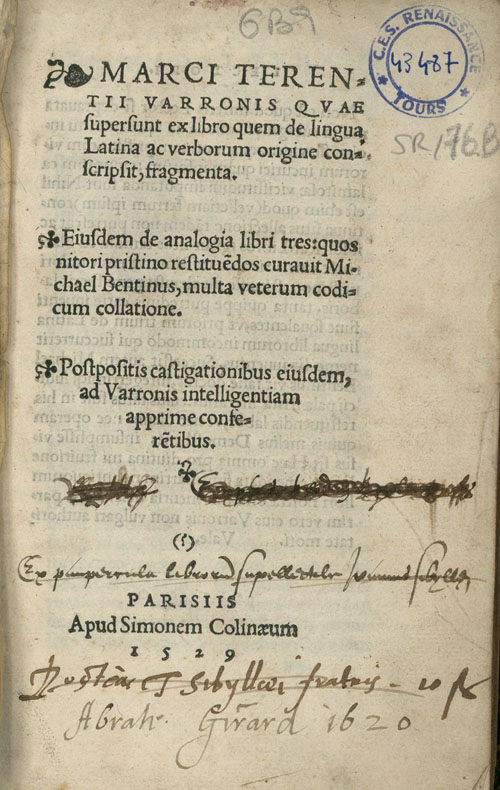 6B9
C.E.S. RENAISSANCE
43487
* TOURS *
SR/76.B
MARCI TEREN-
TII VARRONIS QVAE
supersunt ex libro quem de lingua
Latina ac verborum origine con-
scripsit, fragmenta.
Eiusdem de analogia libri tres: quos
nitori pristino restituẽdos curauit Mi-
chael Bentinus, multa veterum codi-
cum collatione.
Postpositis castigationibus eiusdem,
ad Varronis intelligentiam
apprime confe-
rẽtibus.
Ex paupercula librorũ supellectile
PARISIIS
Apud Simonem Colinæum
1529
Sibyllei fratris
Abrah. Girard 1620